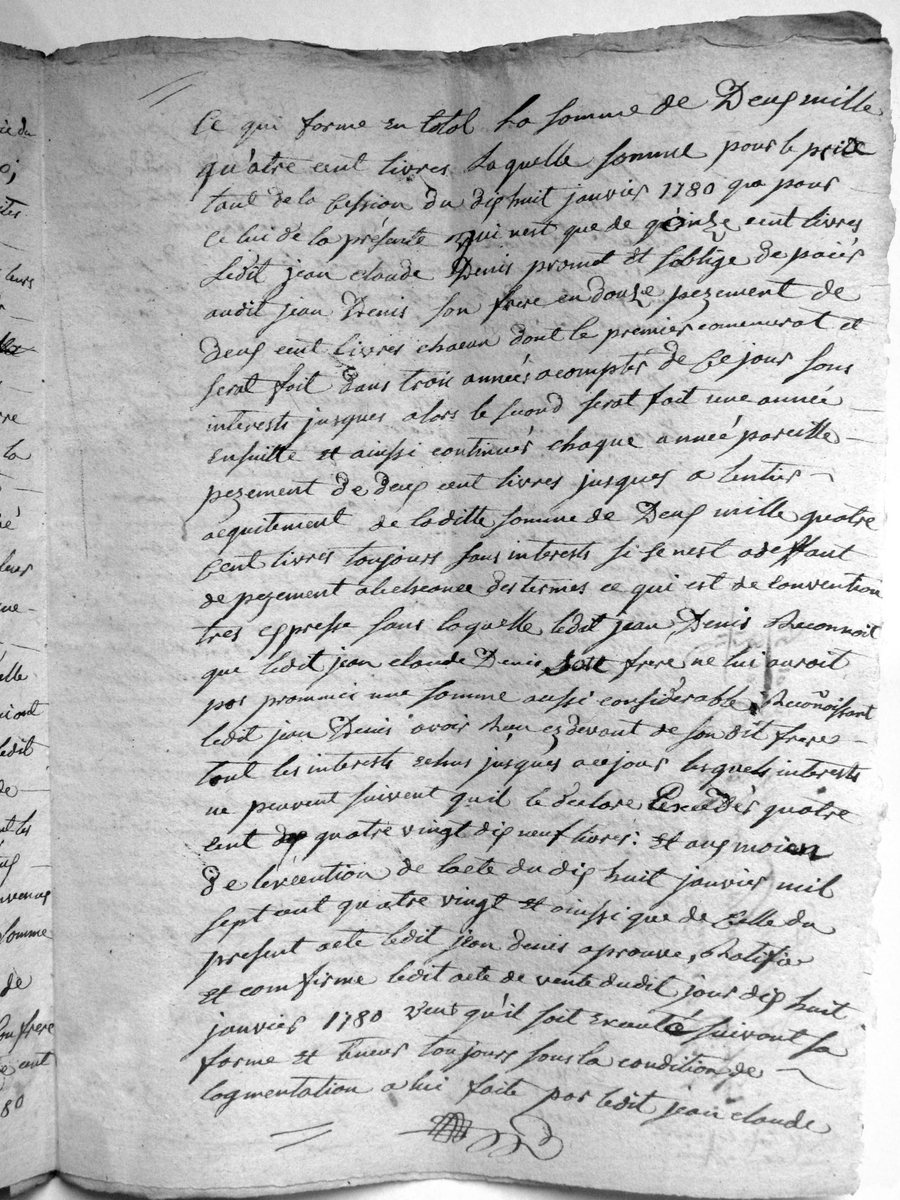 Ce qui forme en total La somme de Deux mille
quatre cent livres Laquelle somme pour le prix
tant de la Cession du dix huit janvier 1780 que pour
Celui de la présente qui nest que de quinze cent livres
Ledit jean claude Denis promet et soblige de paier
audit jean Denis son frere en douze pezement de
deux cent livres chacun dont le premier comencerat et
serat fait dans trois années a compter de Ce jour sans
interests jusques alors le second serat fait une année
ensuitte et ainssi continuer chaque année pareille
pezement de deux cent livres jusques a lentier
aquitement de laditte somme de Deux mille quatre
Cent livres toujours sans interests si se nest a deffaut
de pezement a lecheance des termes ce qui est de Convention
tres expresse sans laquelle ledit jean Denis Reconnoit
que ledit jean claude Denis son frere ne lui auroit
pas prommis une somme aussi considérable, Reconoissant
ledit jean Denis avoir Recu cy devant de son dit frere
tout les interests echus jusques a ce jour lesquels interests
ne peuvent suivent quil le declare Exceder quatre
cent quatre vingt dix neuf livres: et aux moien
De lexecution de lacte du dix huit janvier mil
sept cent quatre vingt et ainssi que de Celle du
present acte ledit jean denis aprouve, Ratifie
et comfirme ledit acte de vente dudit jour dix huit
janvier 1780 veut qu'il soit executé suivant sa
forme et teneur toujours sous la condition de
lagmentation a lui faite par ledit jean claude